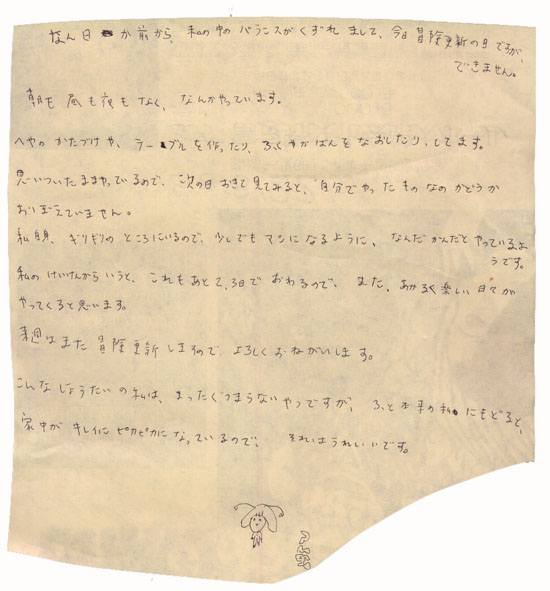 なん日か前から、私の中のバランスがくずれまして、今日冒険更新の日ですが、
できません。
朝も昼も夜もなく、なんかやっています。
へやのかたづけや、テーブルを作ったり、ふくやかばんをなおしたり、してます。
思いついたままやっているので、次の日おきて見てみると、自分でやったものなのかどうか
おぼえていません。
私自身、ぎりぎりのところにいるので、少しでもマシになるように、なんだかんだとやっているよ
うです。
私のけいけんからいうと、これもあと2、3日でおわるので、また、あかるく楽しい日々が
やってくると思います。
来週はまた冒険更新しますので、よろしくおねがいします。
こんなじょうたいの私は、まったくつまらないやつですが、ふと本来の私にもどると、
家中がキレイにピカピカになっているので、それはうれしいです。